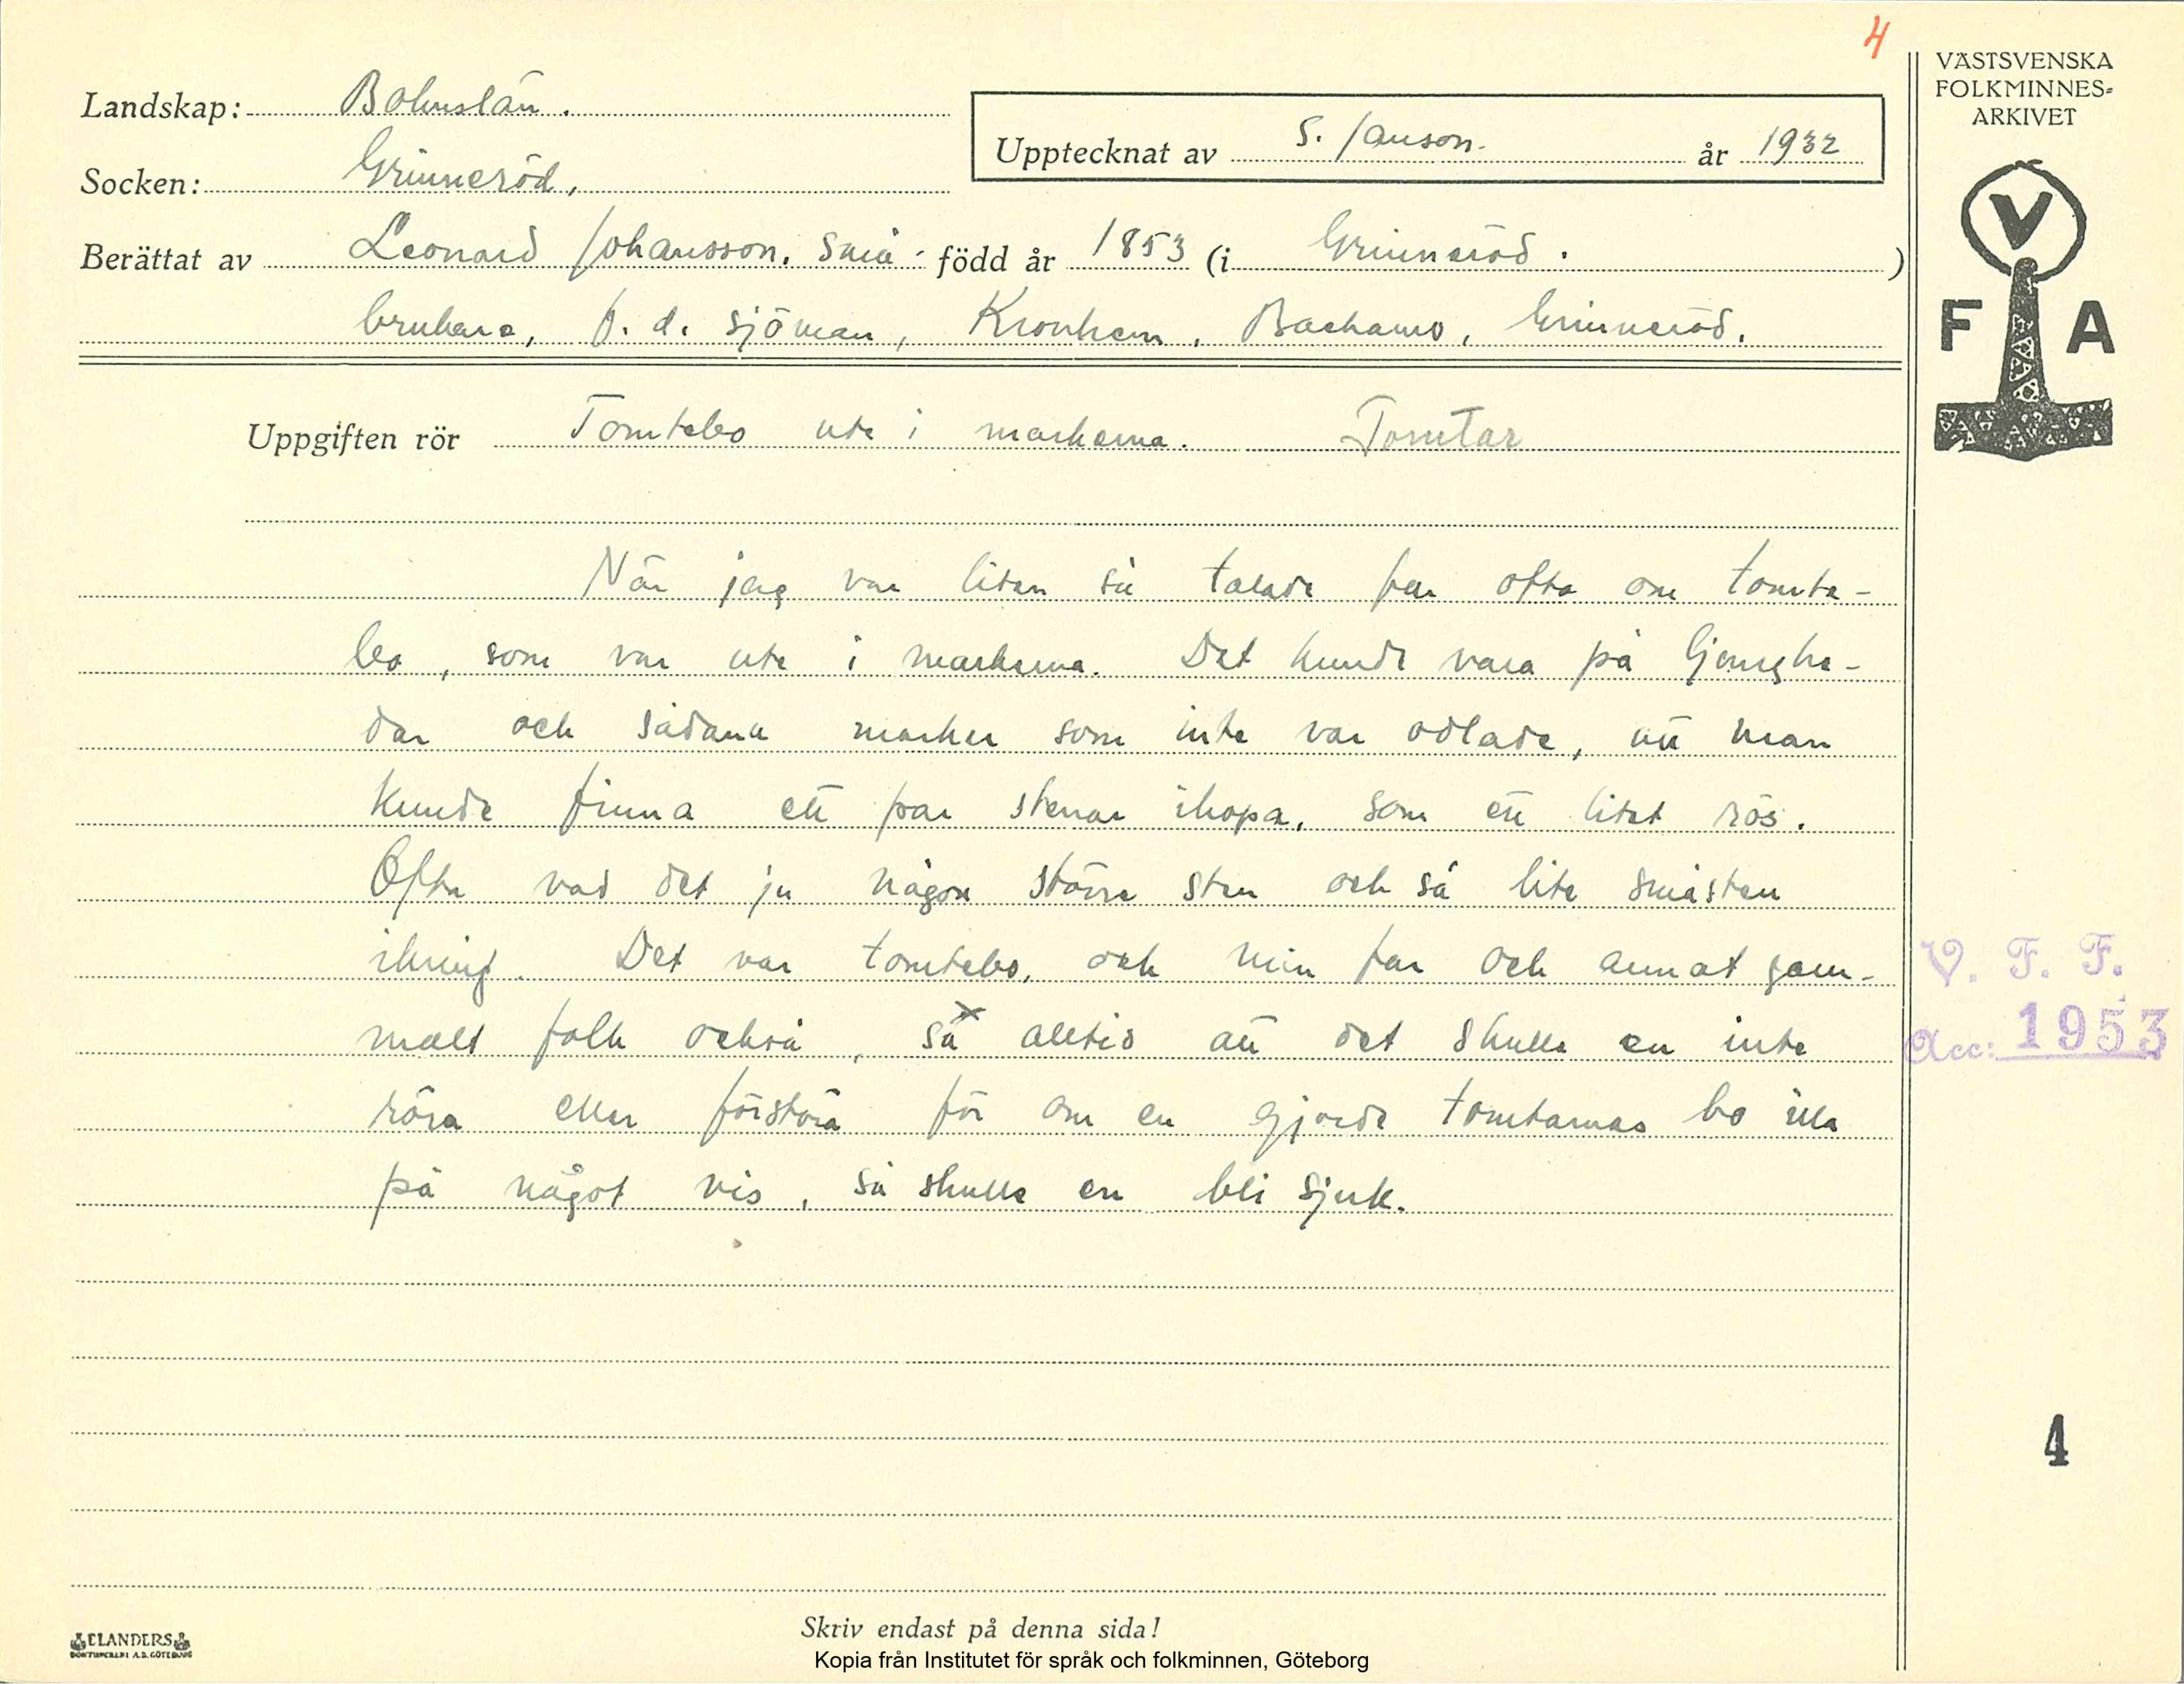 4
VÄSTSVENSKA
FOLKMINNES-
ARKIVET
Landskap: Bohuslän.
Upptecknat av S. Janson. år 1932
Socken: Grinneröd.
Berättat av Leonard Johansson, små- född år 1853 (i Grinneröd. )
brukare, f. d. sjöman, Kronhem, Backamo, Grinneröd.
V
F A
Uppgiften rör Tomtebo ute i markerna. Tomtar
När jag var liten så talade far ofta om tomte-
bo, som var ute i markerna. Det kunde vara på ljunghe-
dar och sådana marker som inte var odlade, att man
kunde finna ett par stenar ihopa, som ett litet rös.
Ofta vad det ju någon större sten och så lite småsten
ikring. Det var tomtebo, och min far och annat gam-
malt folk också, sa alltid att det skulle en inte
röra eller förstöra för om en gjorde tomtarnas bo illa
på något vis, så skulle en bli sjuk.
V. F. F.
Acc: 1953
4
ELANDERS
BOKTRYCKERI A.B. GÖTEBORG
Skriv endast på denna sida!
Kopia från Institutet för språk och folkminnen, Göteborg